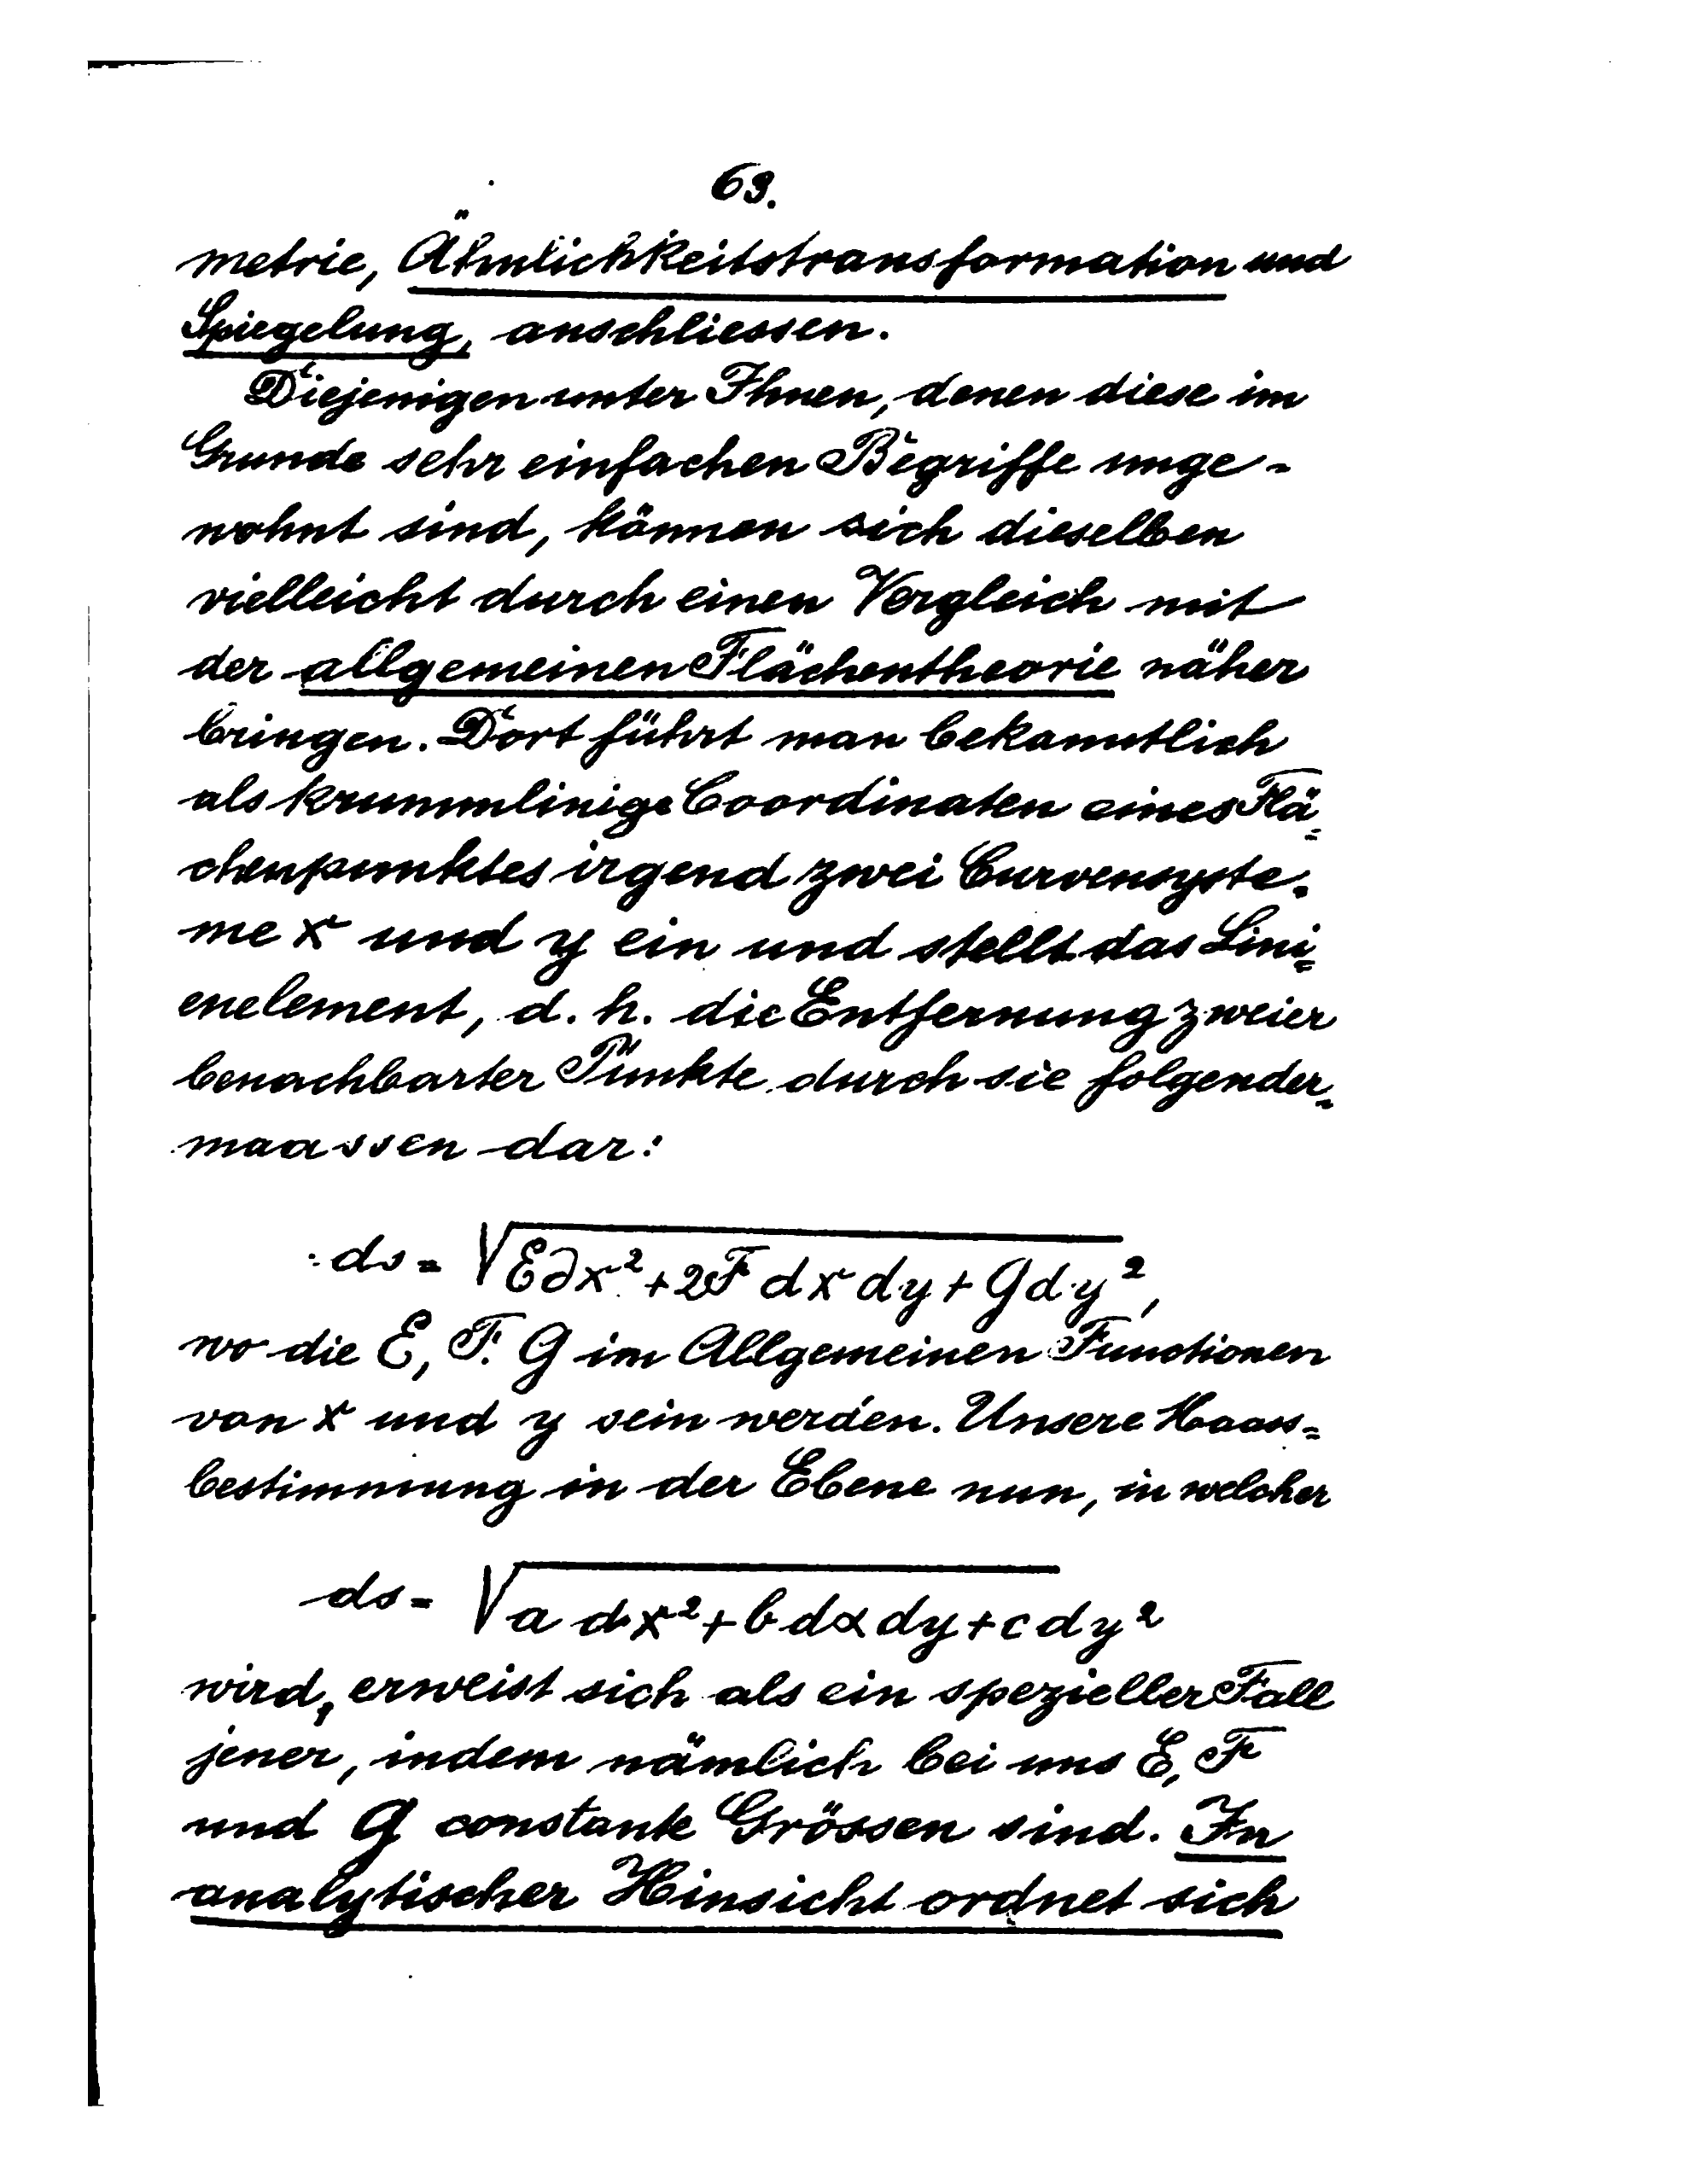 63.
metrie, Ähnlichkeitstransformation und
Spiegelung, anschliessen.
Diejenigen unter Ihnen, denen diese im
Grunde sehr einfachen Begriffe unge-
wohnt sind, können sich dieselben
vielleicht durch einen Vergleich mit
der allgemeinen Flächentheorie näher
bringen. Dort führt man bekanntlich
als krummlinige Coordinaten eines Flä-
chenpunktes irgend zwei Curvensyste-
me x und y ein und stellt das Lini-
enelement, d. h. die Entfernung zweier
benachbarter Punkte durch sie folgender-
maassen dar:
ds = √(E∂x² + 2F dx dy + G dy²),
wo die E, F. G im Allgemeinen Functionen
von x und y sein werden. Unsere Maass-
bestimmung in der Ebene nun, in welcher
ds = √(a dx² + b dx dy + c dy²)
wird, erweist sich als ein spezieller Fall
jener, indem nämlich bei uns E, F
und G constante Grössen sind. In
analytischer Hinsicht ordnet sich